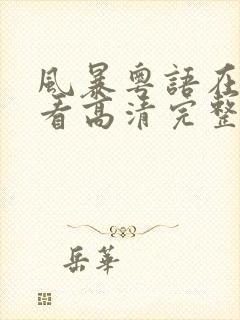 風暴粵語在
看高清完整
岳華